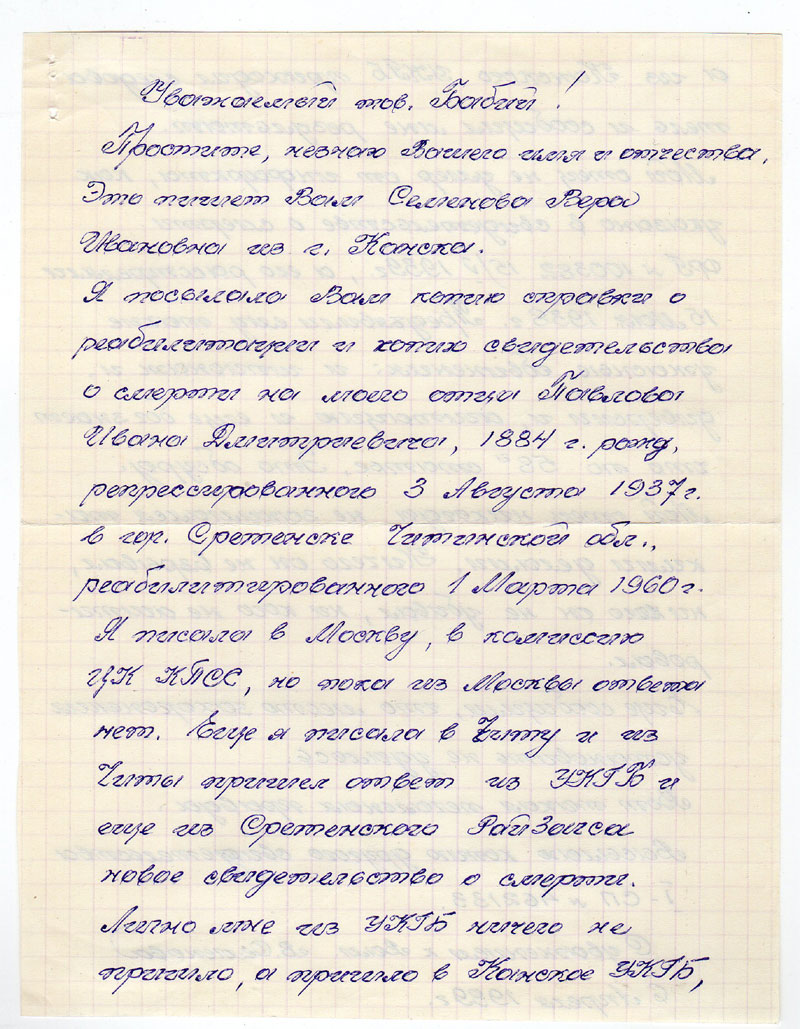 Уважаемый тов. Бабий!
Простите, незнаю Вашего имя и отчества.
Это пишет Вам Семенова Вера
Ивановна из г. Канска.
Я посылала Вам копию справки о
реабилитации и копию свидетельства
о смерти на моего отца Павлова
Ивана Дмитриевича, 1884 г. рожд,
репрессированного 3 Августа 1937г.
в гор. Сретенске Читинской обл.,
реабилитированного 1 Марта 1960г.
Я писала в Москву, в комисию
ЦК КПСС, но пока из Москвы ответа
нет. Еще я писала в Читу и из
Читы пришел ответ из УКГБ и
еще из Сретенского РайЗагса
новое свидетельство о смерти.
Лично мне из УКГБ ничего не
пришло, а пришло в Канское УКГБ,